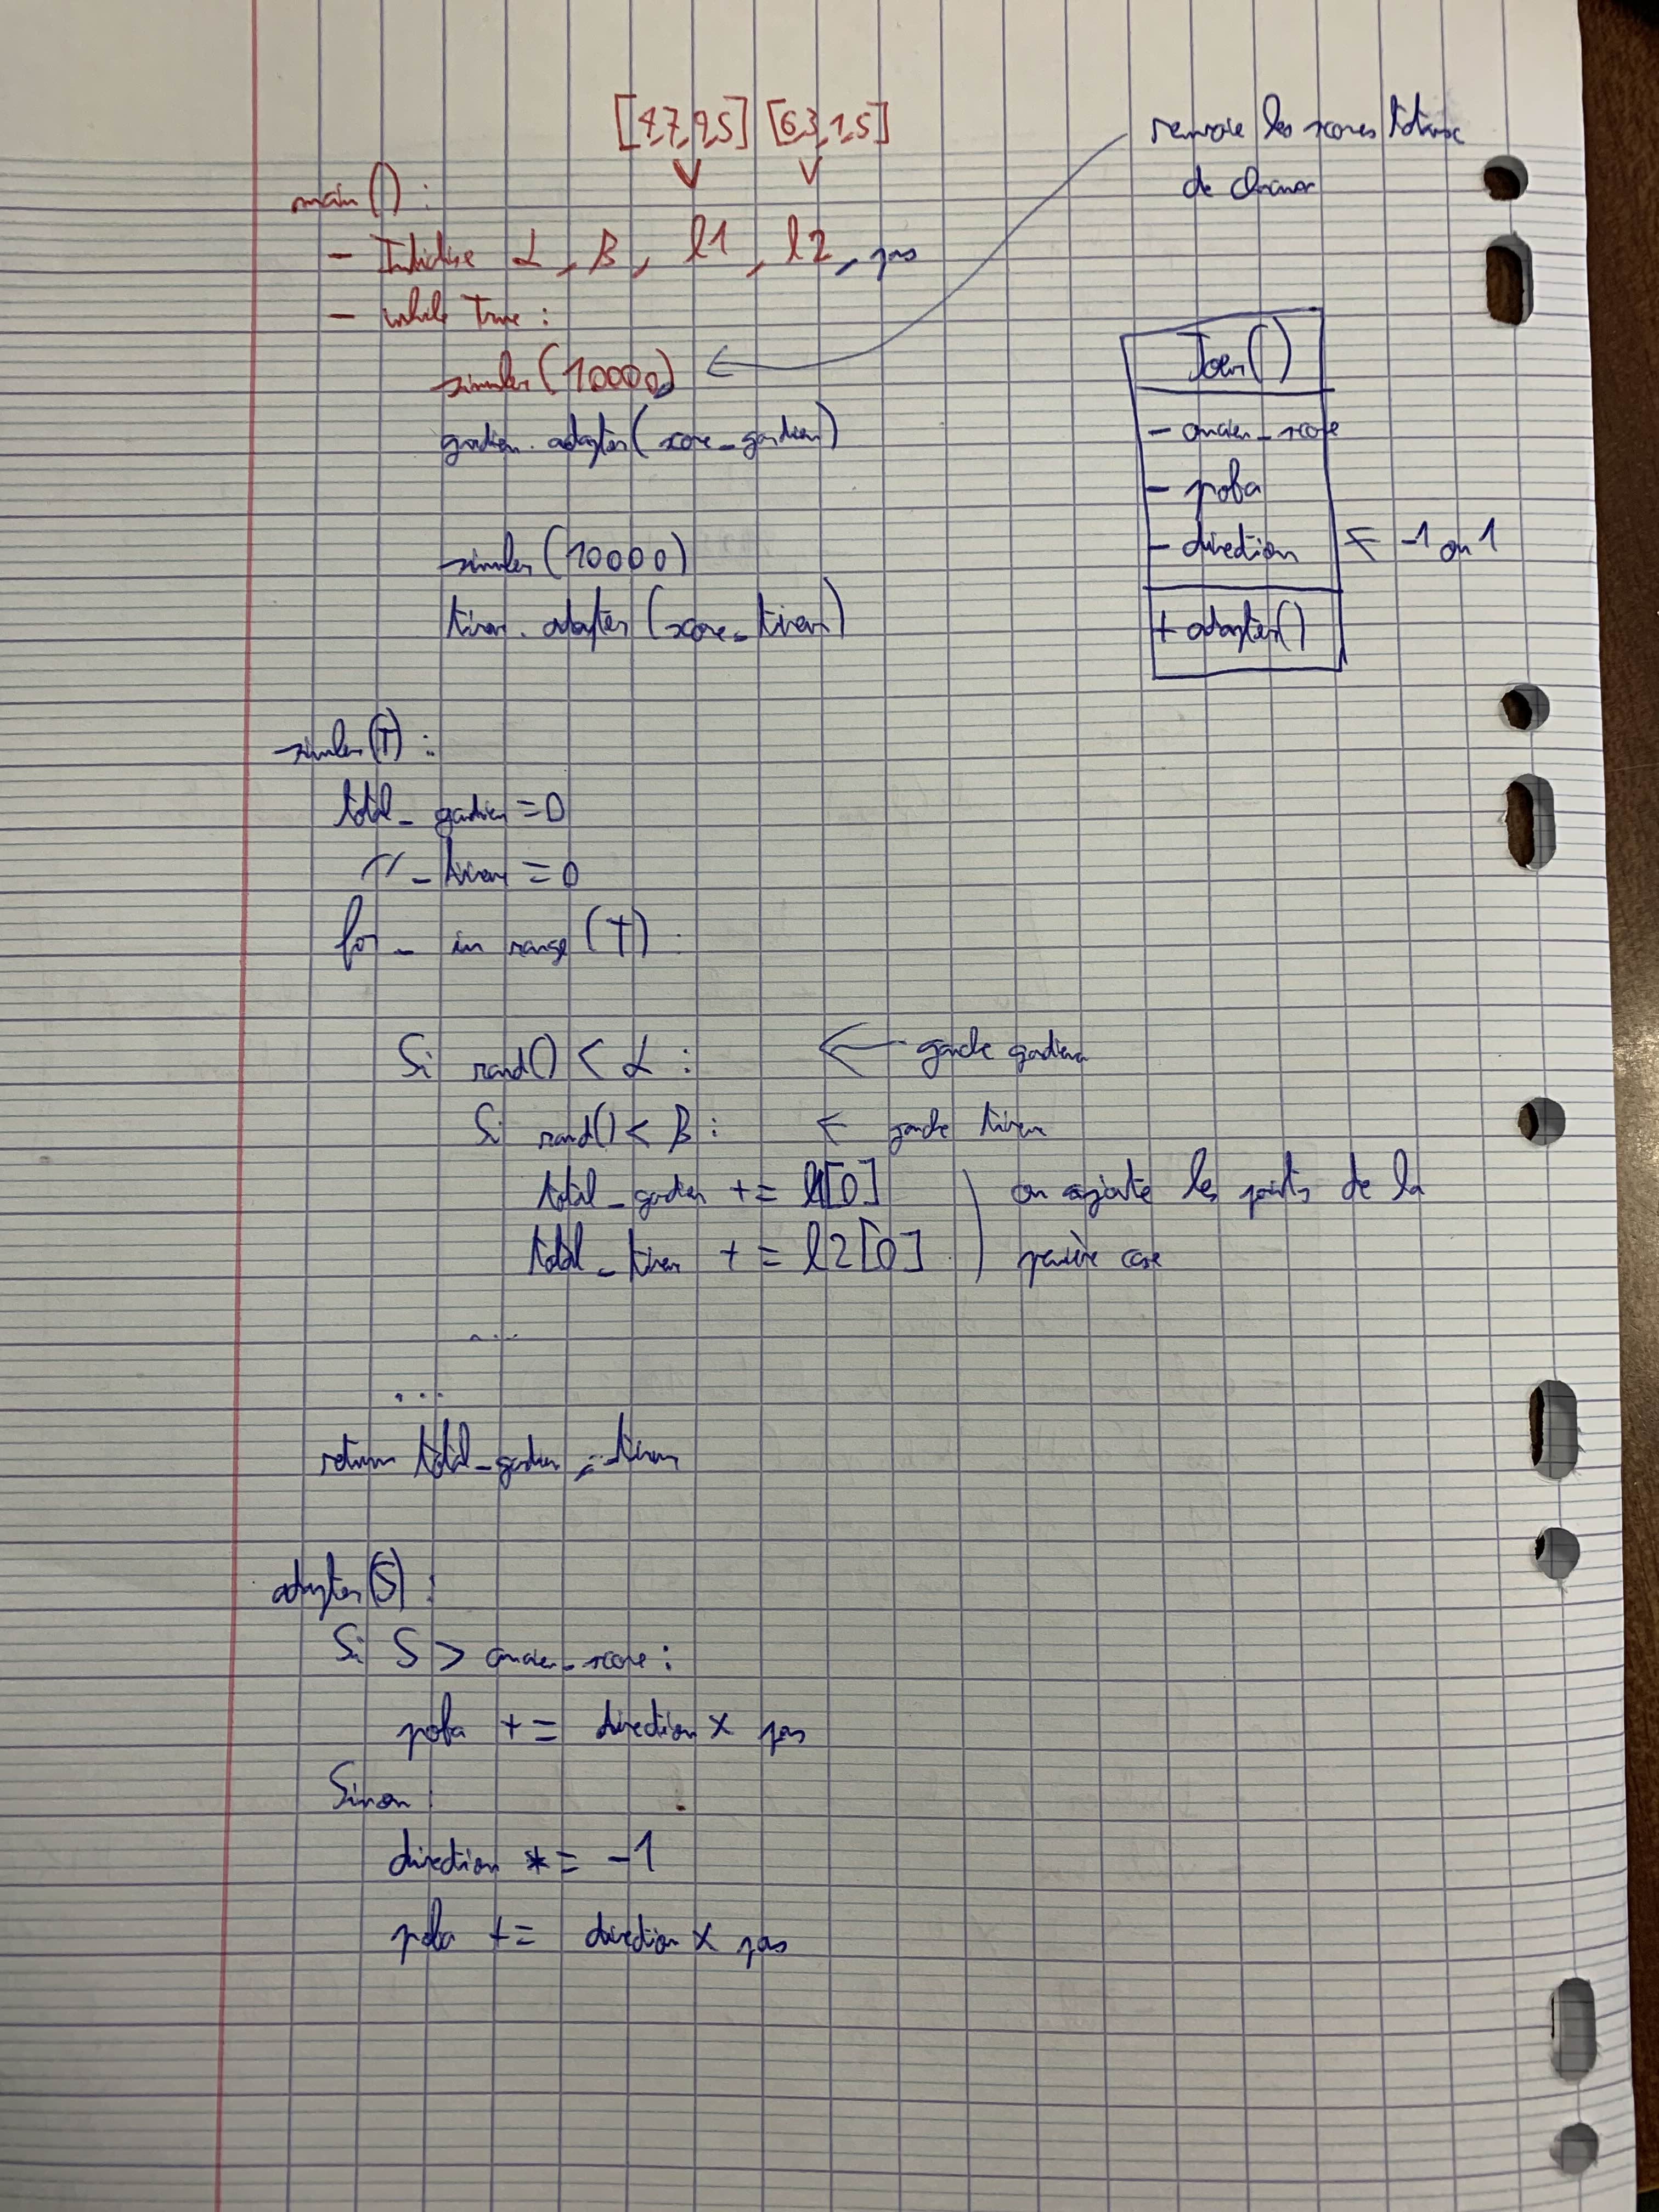 [4,7,9,5] [6,3,1,5]
renvoie les scores totaux
de chacun
main() :
- Initialise α, β, l1, l2, pas
- while True :
simuler(10000)
gardien.adapter(score_gardien)
simuler(10000)
tireur.adapter(score_tireur)
Joueur()
- ancien_score
- proba
- direction ← -1 ou 1
+ adapter()
simuler(T) :
total_gardien = 0
〃_tireur = 0
for _ in range(T) :
Si rand() < α : ← gauche gardien
Si rand() < β : ← gauche tireur
total_gardien += l1[0]
total_tireur += l2[0]
on ajoute les points de la
première case
...
...
return total_gardien, _tireur
adapter(S) :
Si S > ancien_score :
proba += direction × pas
Sinon :
direction *= -1
proba += direction × pas